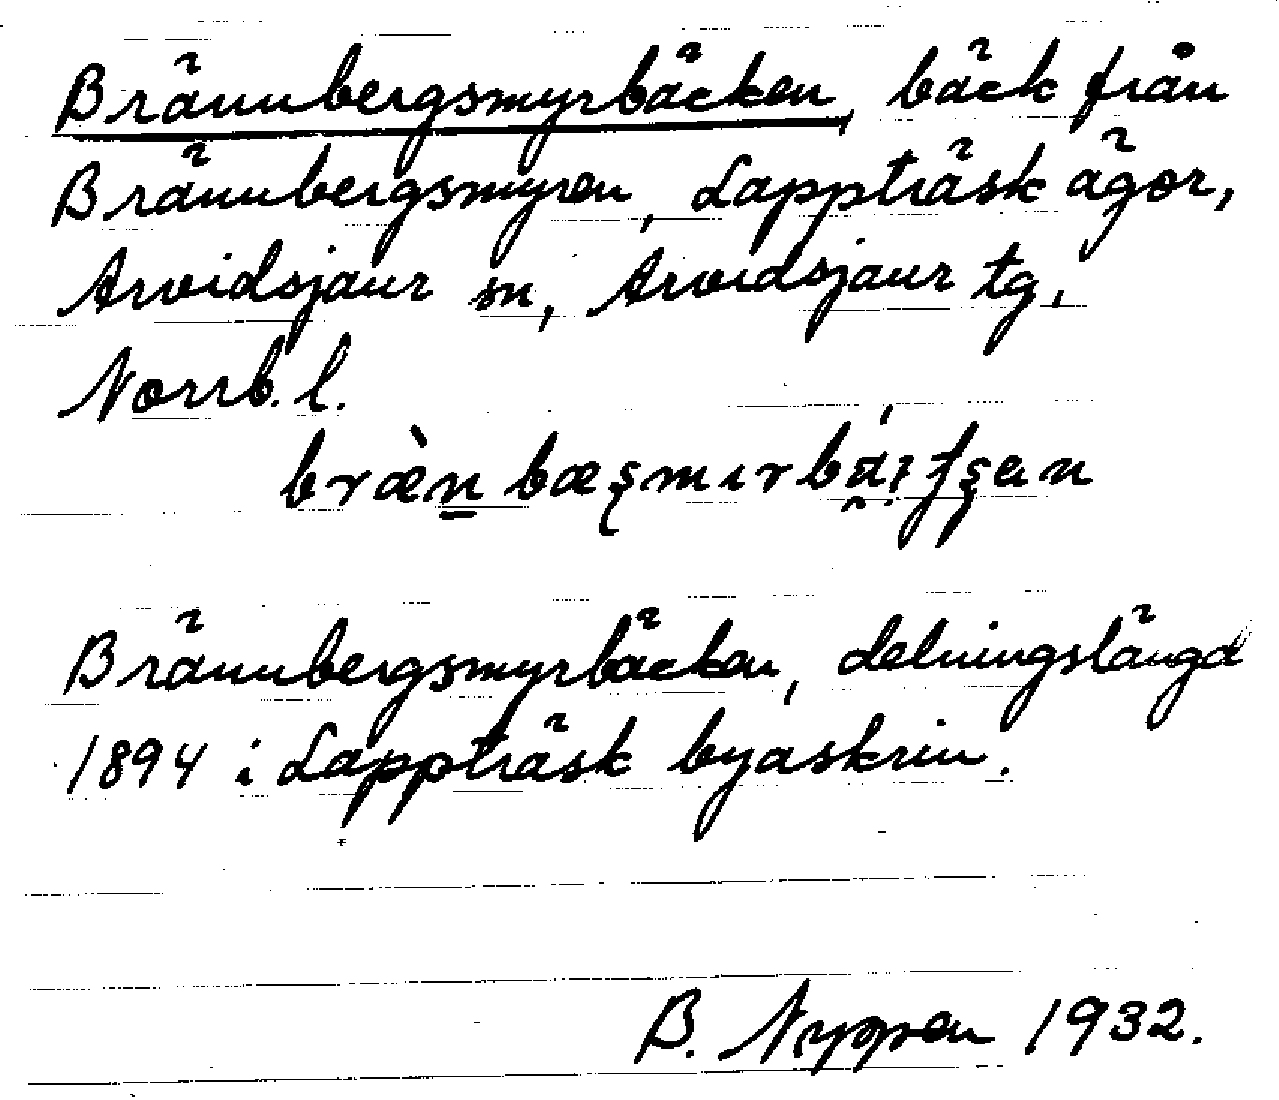 Brännbergsmyrbäcken, bäck från
Brännbergsmyren, Lappträsk ägor,
Arvidsjaur sn, Arvidsjaur tg,
Norrb. l.
Brännbergsmyrbäcken, delningslängd
1894 i Lappträsk byaskrin.
B. Nyppen 1932.